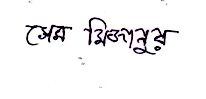 সেন মিজানুর